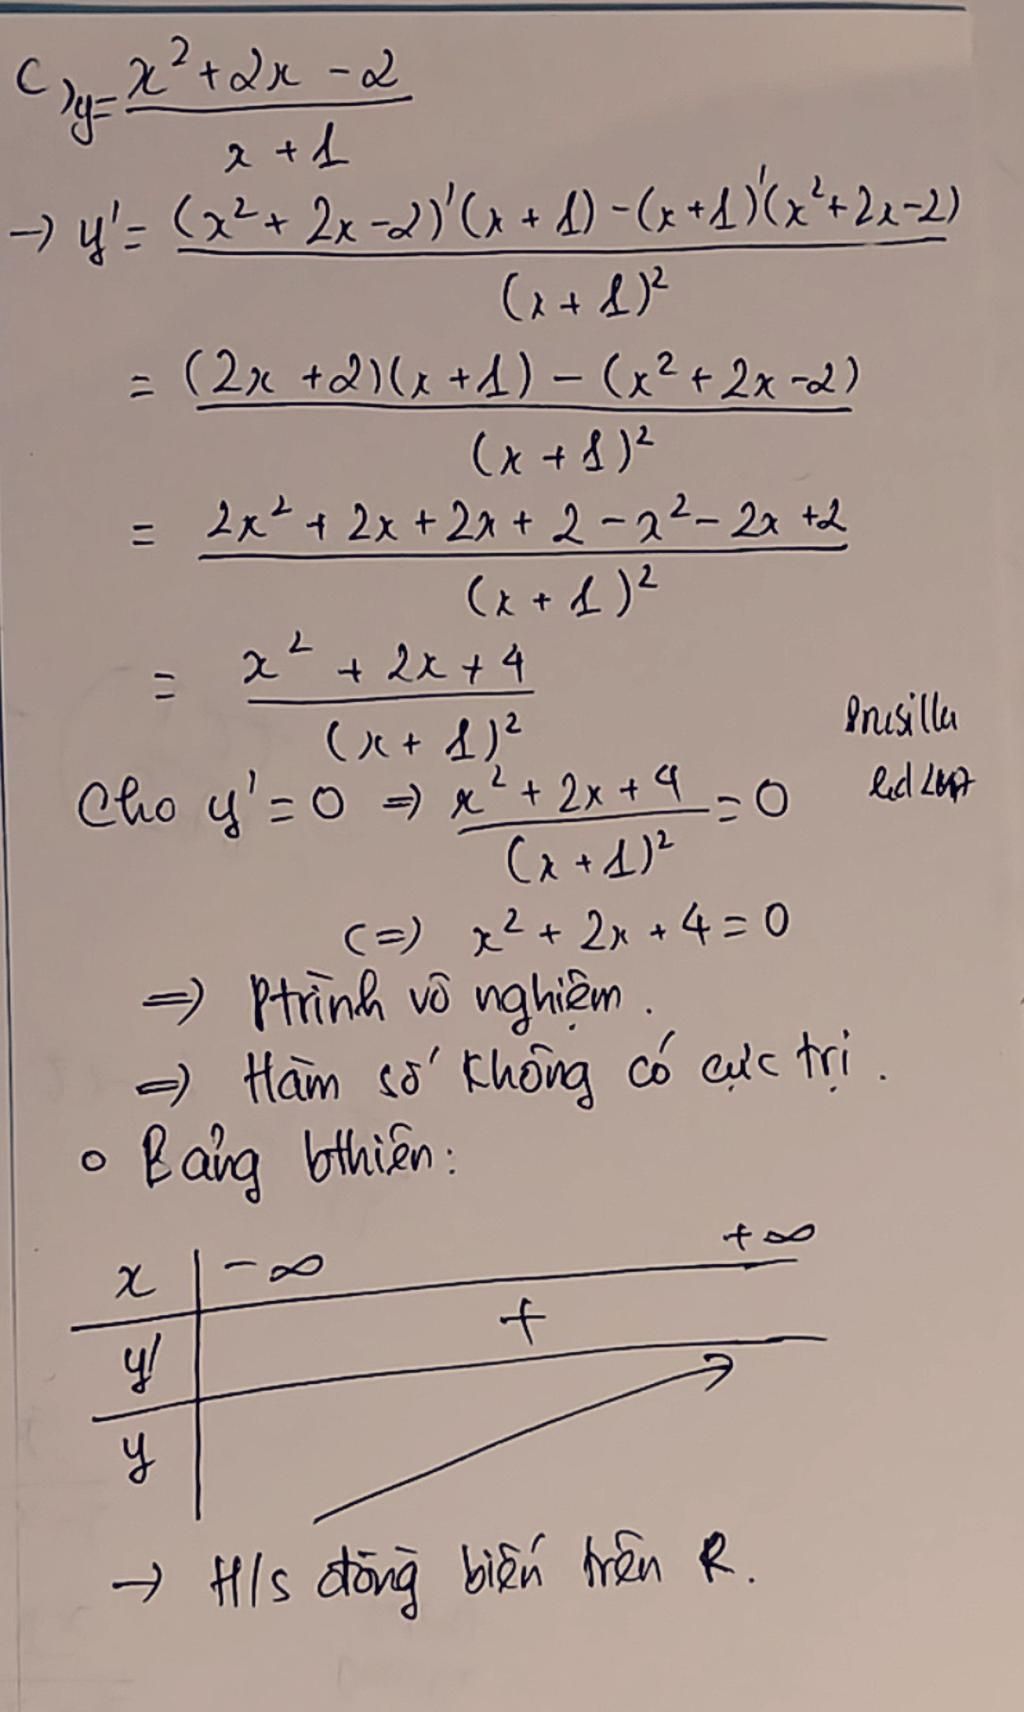 c) y = (x² + 2x - 2)/(x + 1)
→ y' = ((x² + 2x - 2)'(x + 1) - (x + 1)'(x² + 2x - 2))/(x + 1)²
= ((2x + 2)(x + 1) - (x² + 2x - 2))/(x + 1)²
= (2x² + 2x + 2x + 2 - x² - 2x + 2)/(x + 1)²
= (x² + 2x + 4)/(x + 1)²
Cho y' = 0 => (x² + 2x + 4)/(x + 1)² = 0
<=> x² + 2x + 4 = 0
=> Ptrình vô nghiệm.
=> Hàm số không có cực trị.
o Bảng bthiên:
x -∞ +∞
y' +
y
→ H/s đồng biến trên R.